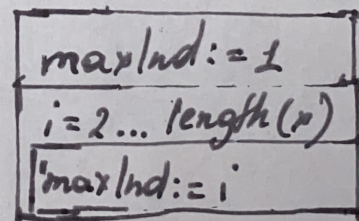 maxInd:=1
i=2... length(x)
maxInd:=i